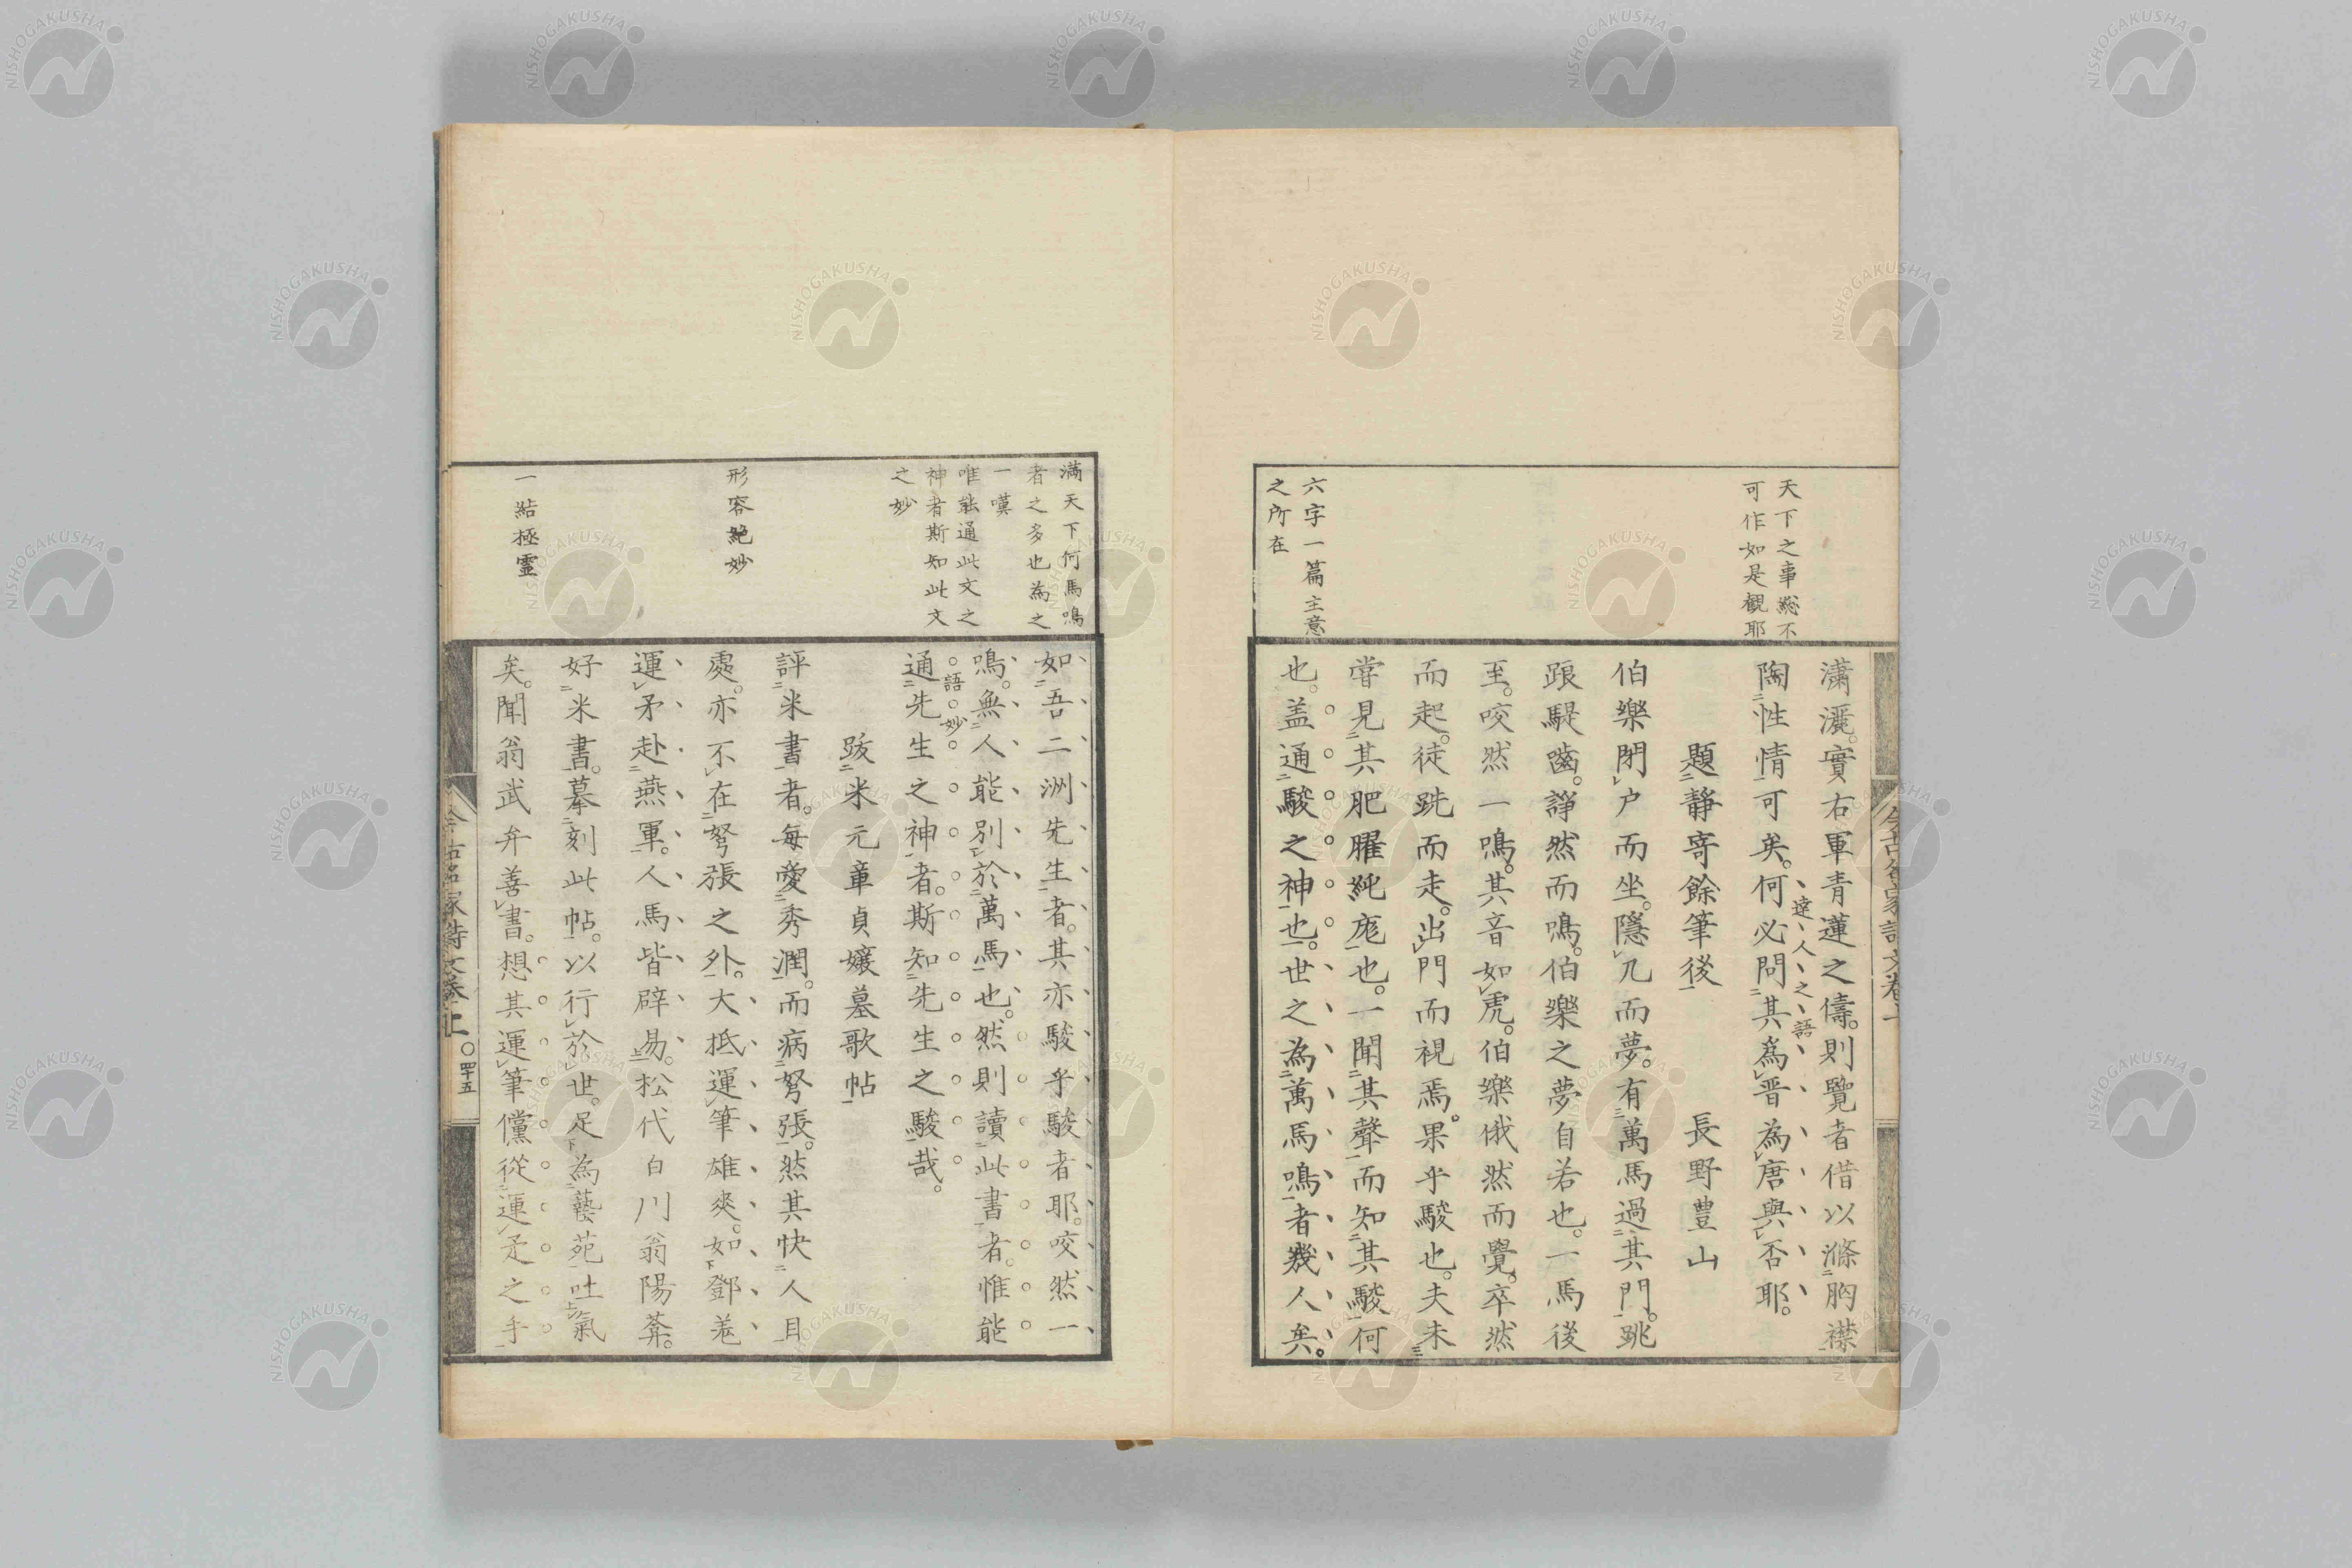 天下之事總不
可作如是観耶
六字一篇主意
之所在
瀟灑。實右軍青蓮之儔。則覽者借以滌胸襟
陶性情可矣。何必問其爲晋為唐與否耶。
達人之語
題靜寄餘筆後 長野豊山
伯樂閉户而坐。隱几而夢。有萬馬過其門。跳
踉騠嚙。諍然而鳴。伯樂之夢自若也。一馬後
至。咬然一鳴。其音如虎。伯樂俄然而覺。卒然
而起。徒跣而走。出門而視焉。果乎駿也。夫未
嘗見其肥臞純厖也。一聞其聲而知其駿何
也。盖通駿之神也。世之為萬馬鳴者幾人矣。
満天下何馬鳴
者之多也為之
一嘆
唯能通此文之
神者斯知此文
之妙
形容絶妙
一結極靈
如吾二洲先生者。其亦駿乎駿者耶。咬然一
鳴。無人能別於萬馬也。然則讀此書者。惟能
語妙
通先生之神者。斯知先生之駿哉。
跋米元章貞孃墓歌帖
評米書者。每愛秀潤。而病弩張。然其快人目
處。亦不在弩張之外。大抵運筆雄爽。如鄧羗
運矛赴燕軍。人馬皆辟易。松代白川翁陽莽。
好米書。摹刻此帖。以行於世。足為藝苑吐氣
矣。聞翁武弁善書。想其運筆儻從運疋之手
今古名家詩文卷上 〇四十五
NISHOGAKUSHA